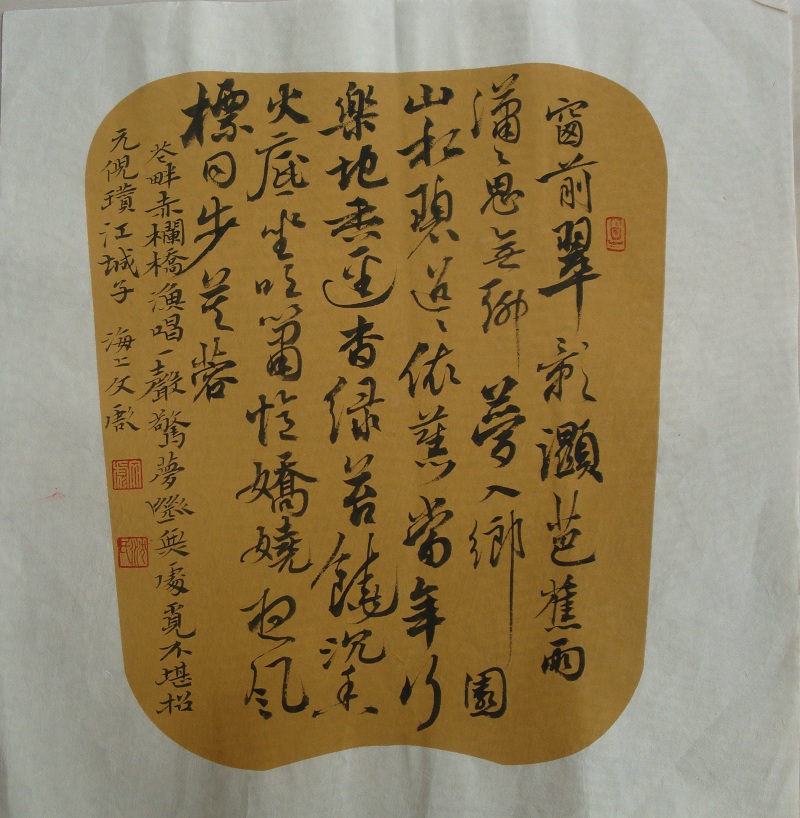 窗前翠影濕芭蕉雨
瀟〻思無聊夢入鄉園
山水碧迢〻依舊當年行
樂地香徑杳綠苔饒沉香
火底坐吹簫憶嬌嬈想風
標同步芙蓉
花畔赤欄橋漁唱一聲驚夢無處覓不堪招
元倪瓚江城子 海上文